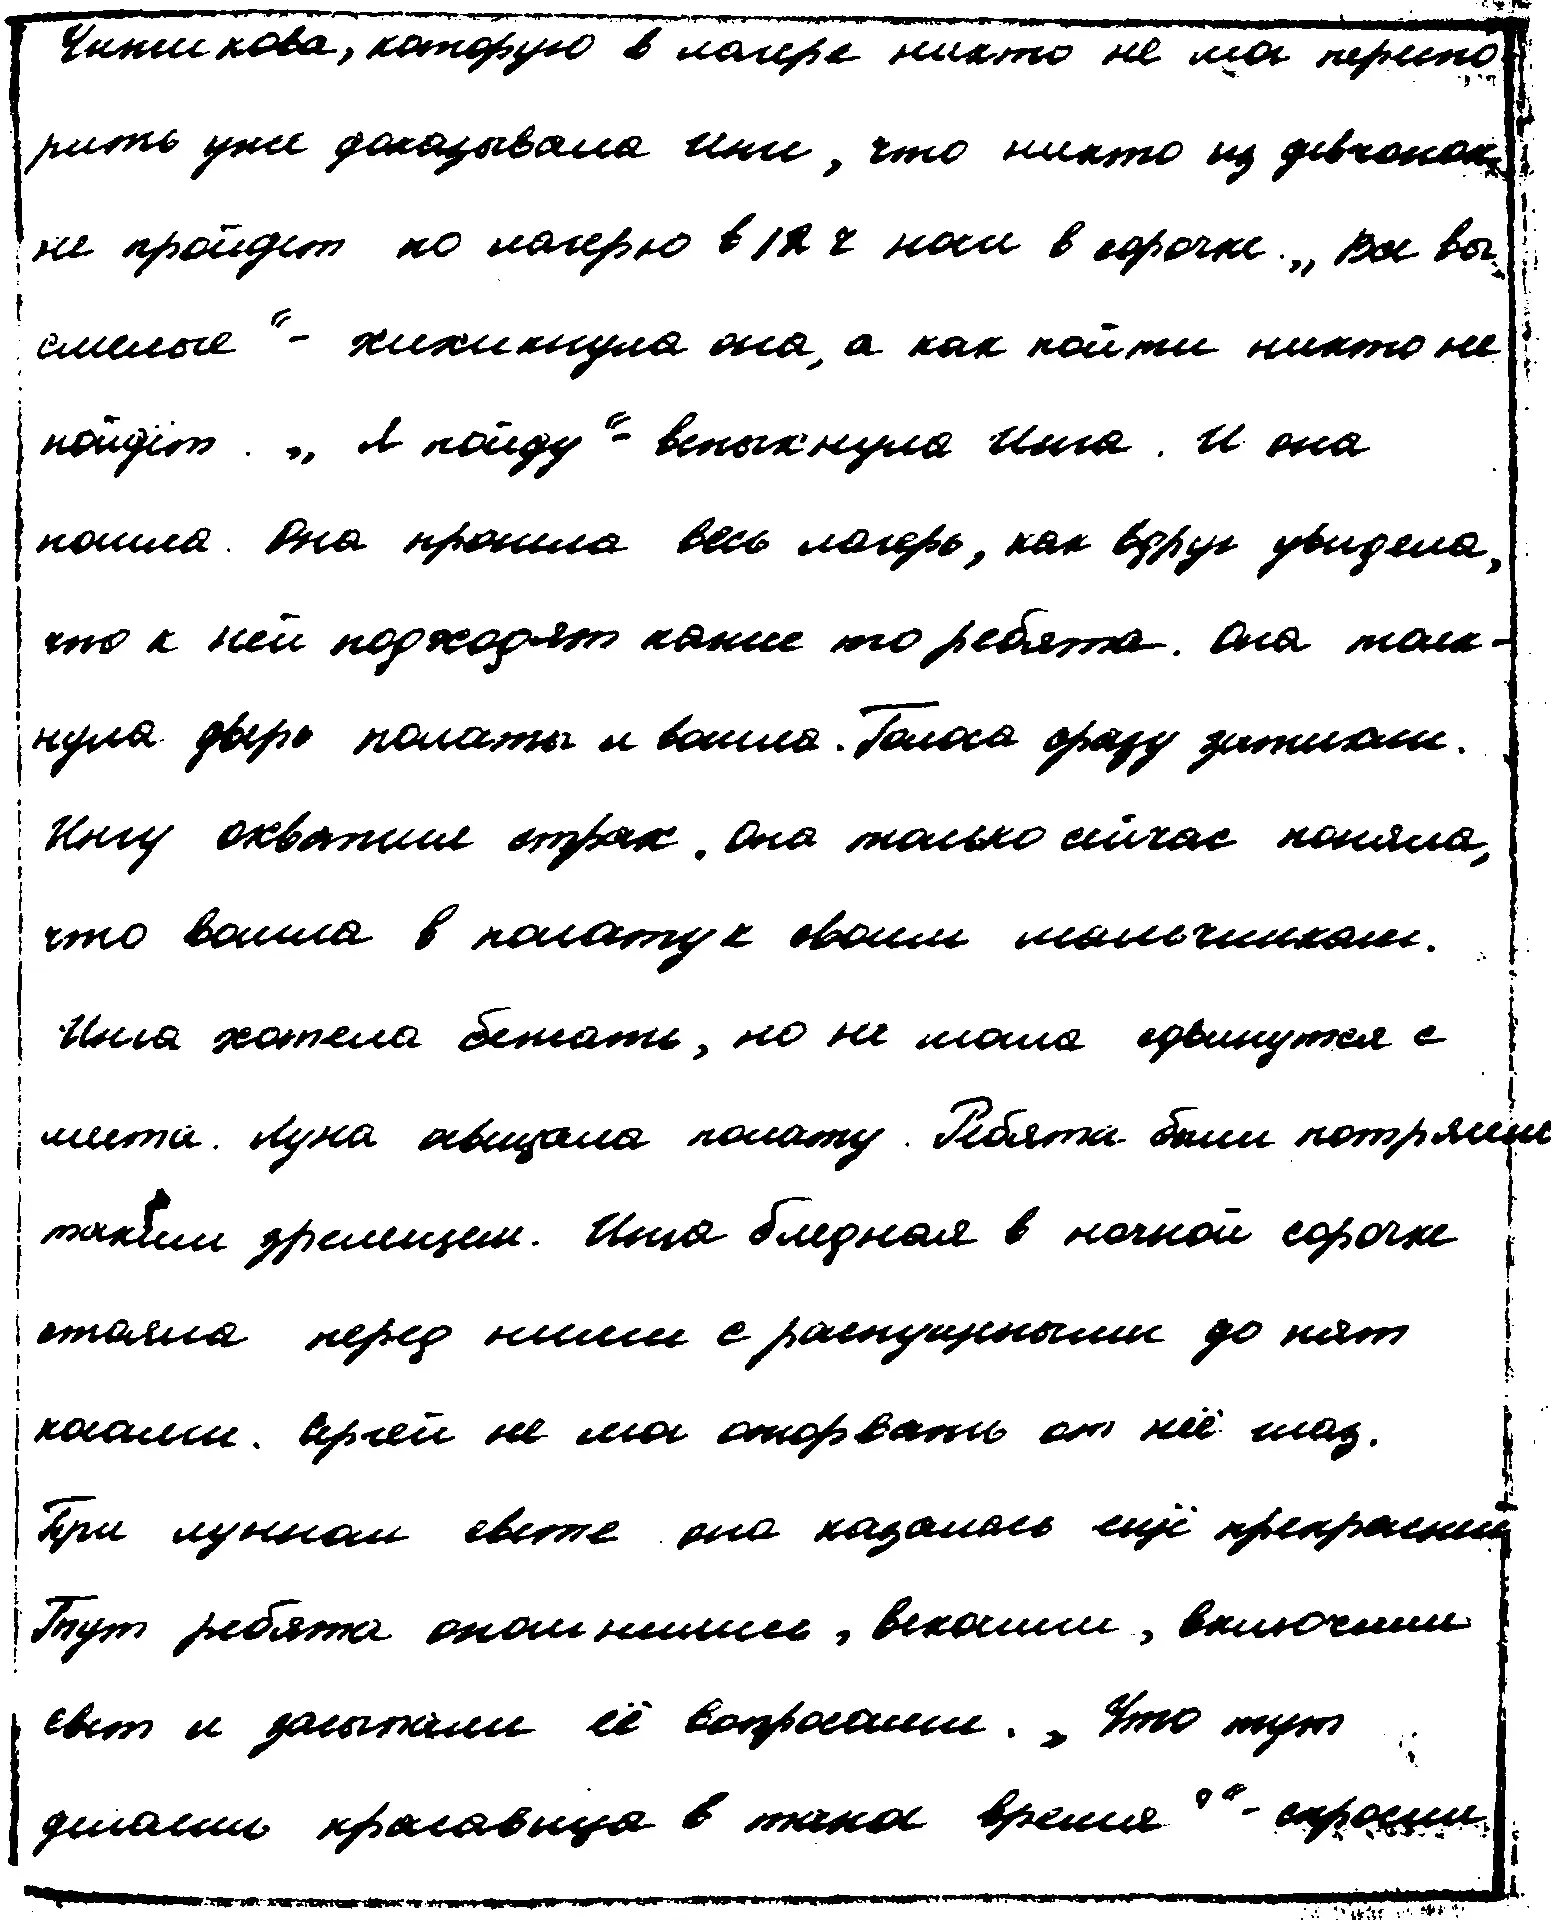 Чижикова, которую в лагере никто не мог переспо
рить уже доказывала Инге, что никто из девчонок
не пройдет по лагерю в 12 ч ночи в сорочке. „Все вы
смелые“ - хихикнула она, а как пойти никто не
пойдёт. „Я пойду“ - вспыхнула Инга. И она
пошла. Она прошла весь лагерь, как вдруг увидела,
что к ней подходят какие то ребята. Она толк-
нула дверь полаты и вошла. Голоса сразу затихали.
Ингу охватил страх. Она только сейчас поняла,
что вошла в полату к своим мальчишкам.
Инга хотела бежать, но не могла сдвинутся с
места. Луна освещала полату. Ребята были потрясены
таким зрелещем. Инга бледная в ночной сорочке
стояла перед ними с распущенными до пят
косами. Сергей не мог оторвать от неё глаз.
При лунном свете она казалась ещё прекрасней
Тут ребята опомнились, вскочили, включили
свет и засыпали её вопросами. „Что тут
делает красавица в такое время?“ - спросил